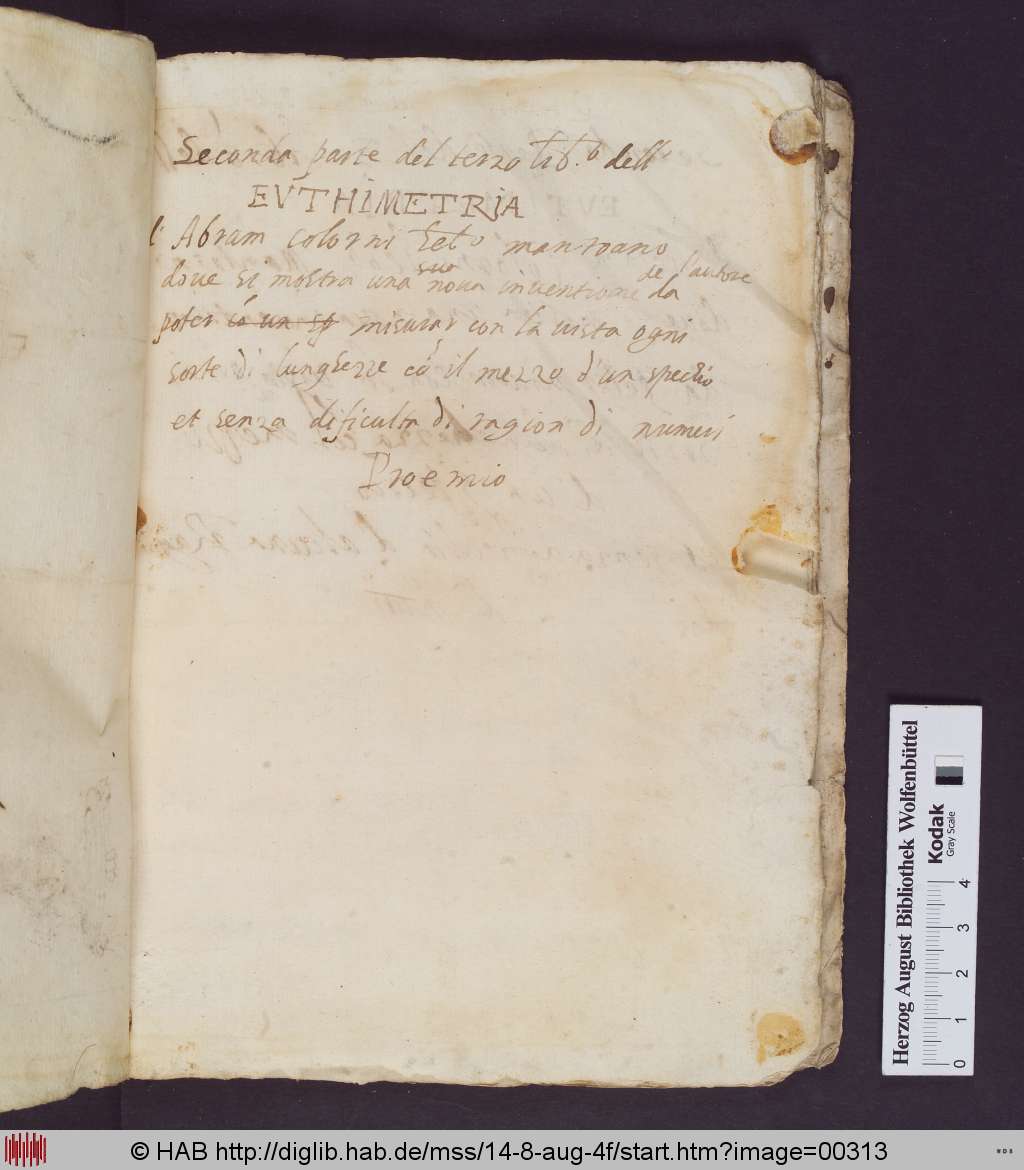 Seconda parte del terzo lib.º dell'
EVTHIMETRIA
Abram Colorni heb.º mantoano
dove si mostra una sua nova inventione de l'autore da
poter cō un sp misurar con la vista ogni
sorte di lunghezze cō il mezzo d'un spechio
et senza dificulta di ragion di numeri
Proemio
Herzog August Bibliothek Wolfenbüttel
Kodak
Gray Scale
0 1 2 3 4
© HAB http://diglib.hab.de/mss/14-8-aug-4f/start.htm?image=00313